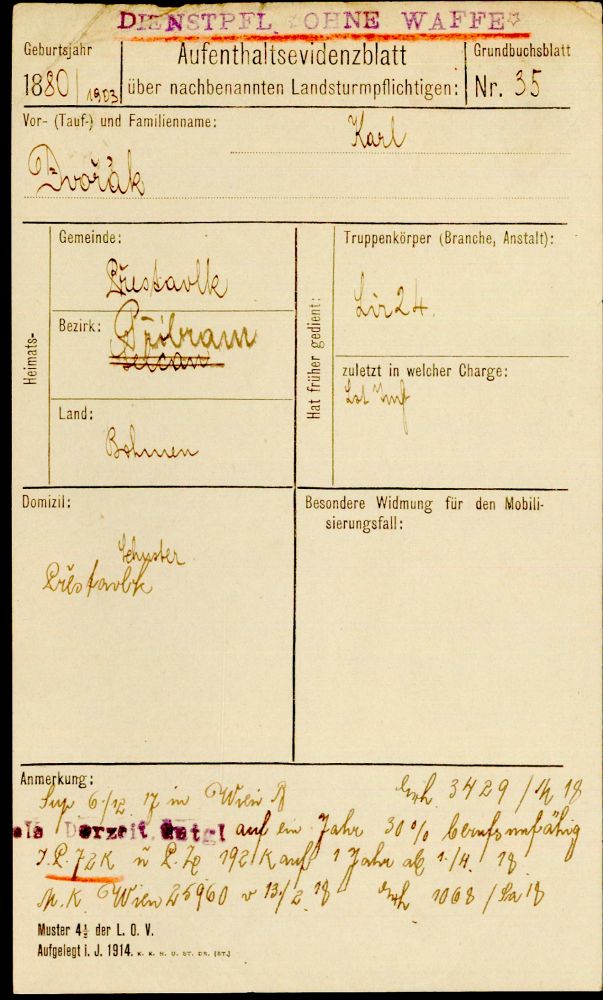 DIENSTPFL. OHNE WAFFE
Geburtsjahr
1880/1903
Aufenthaltsevidenzblatt
über nachbenannten Landsturmpflichtigen:
Grundbuchsblatt
Nr. 35
Vor- (Tauf-) und Familienname:
Karl
Dvořák
Heimats-
Gemeinde:
Přestavlk
Bezirk:
Přibram
Land:
Böhmen
Hat früher gedient:
Truppenkörper (Branche, Anstalt):
Lir 24.
zuletzt in welcher Charge:
Lst Inf
Domizil:
Schuster
Přestavlk
Besondere Widmung für den Mobili-
sierungsfall:
Anmerkung:
Sup 6/12 17 in Wien
3429 / 18
als Derzeit auf ein Jahr 30% berufsunfähig
I.P. 72K u P.Z. 192 K auf 1 Jahr ab 1./4. 18
M.K Wien 25960 v 13/2 18 1068 / 18
Muster 4½ der L. O. V.
Aufgelegt i. J. 1914. K. K. H. U. ST. DR. (ST.)